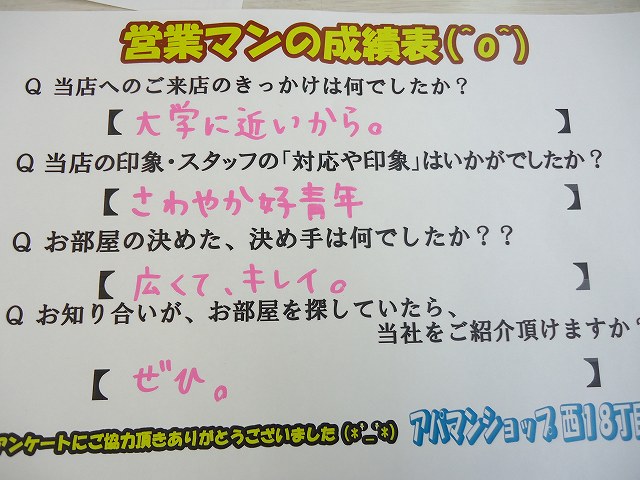 営業マンの成績表(^o^)
Q 当店へのご来店のきっかけは何でしたか？
【 大学に近いから。 】
Q 当店の印象・スタッフの「対応や印象」はいかがでしたか？
【 さわやか好青年 】
Q お部屋の決めた、決め手は何でしたか？？
【 広くて、キレイ。 】
Q お知り合いが、お部屋を探していたら、
当社をご紹介頂けますか？
【 ぜひ。 】
アンケートにご協力頂きありがとうございました(*^_^*)
アパマンショップ 西18丁目